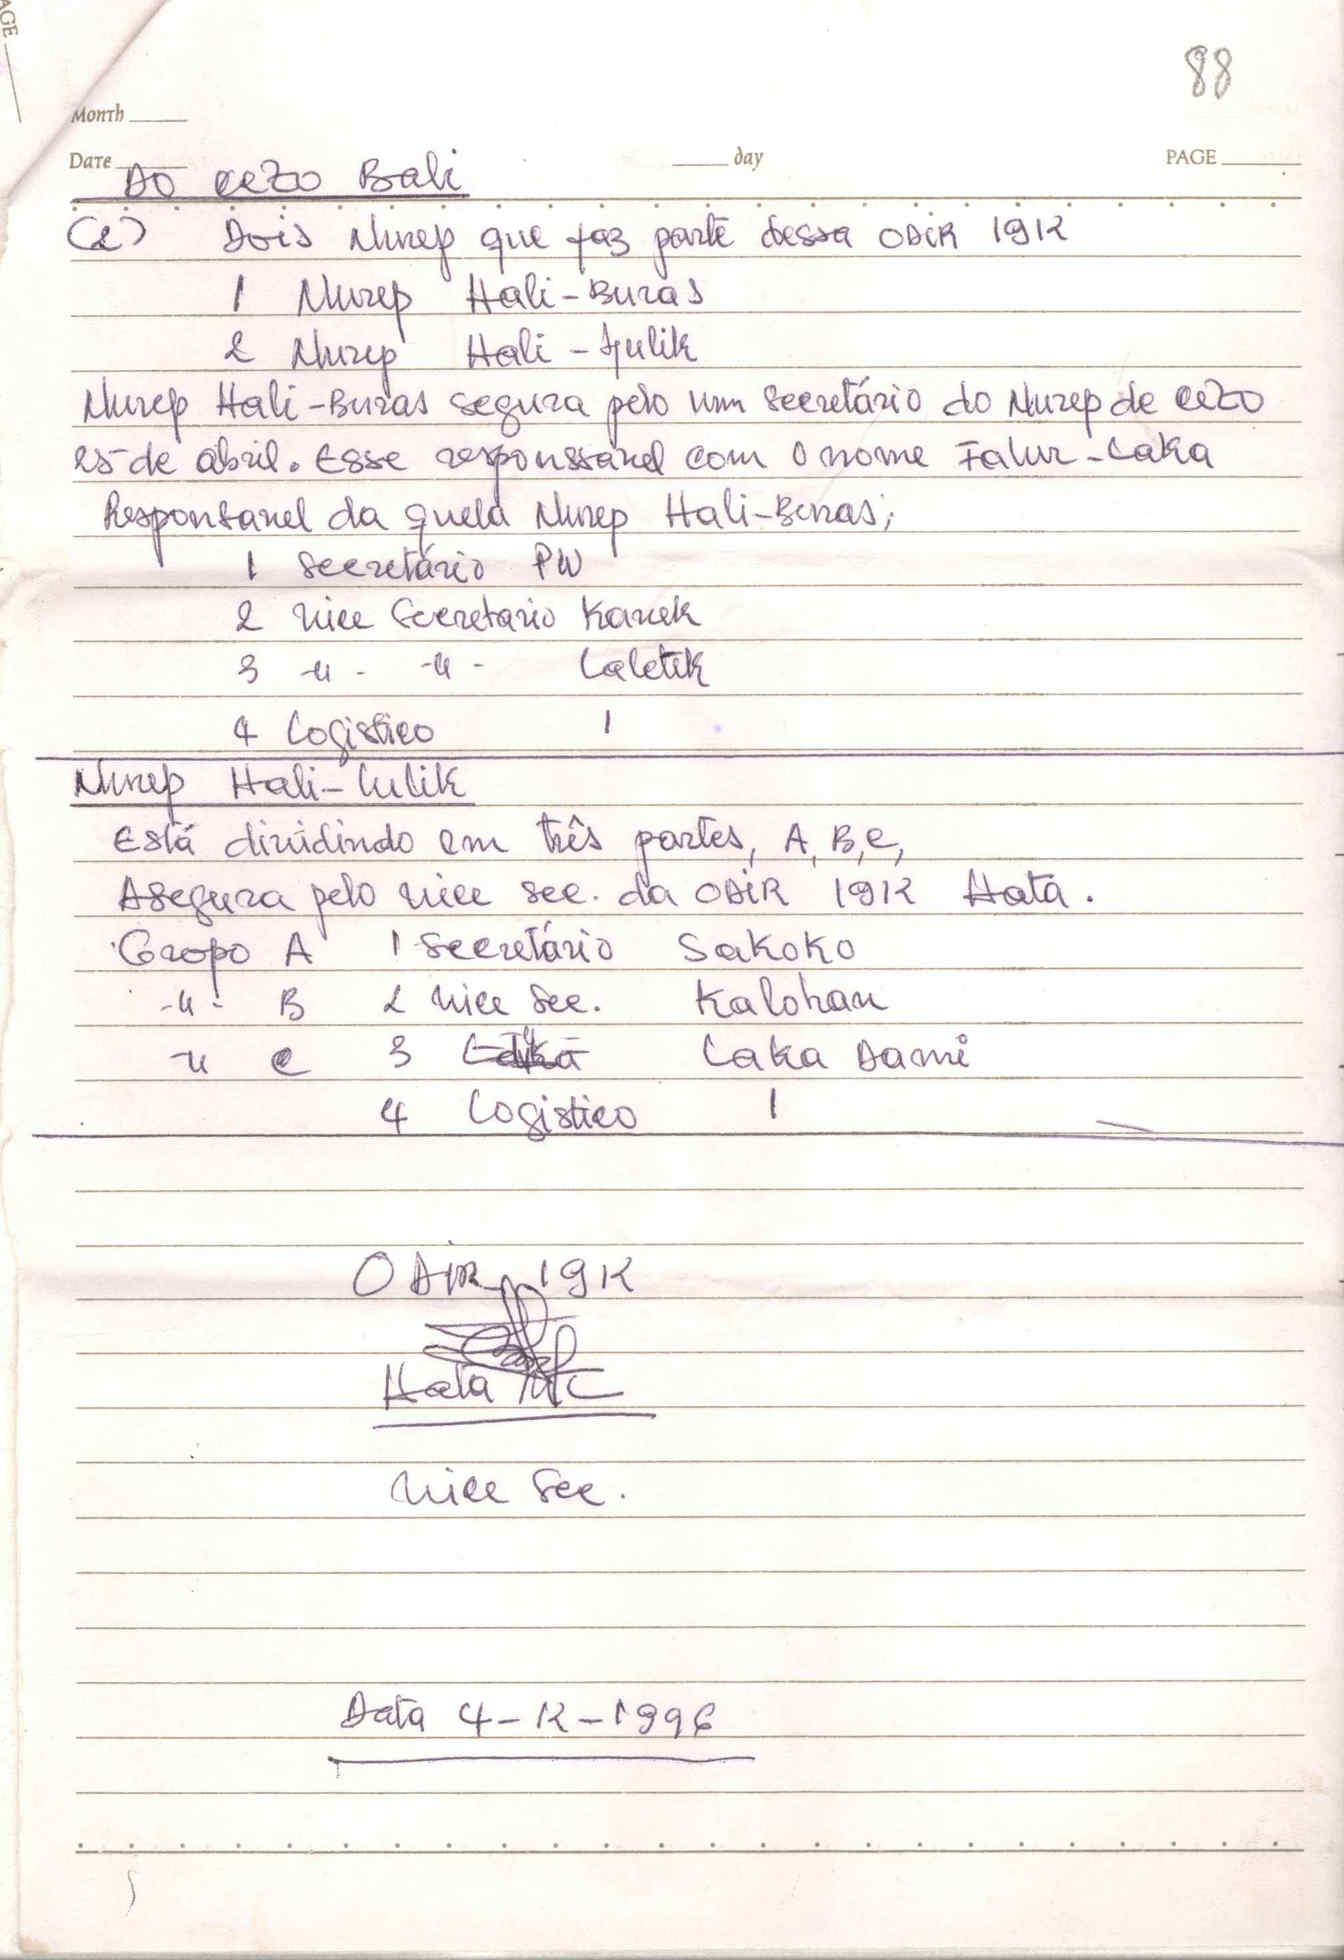 AGE
88
Month
Date
day
PAGE
Ao CeZo Bali
(2) Dois Nurep que faz parte dessa ODiR 1912
1 Nurep Hali-Buras
2 Nurep Hali-Julik
Nurep Hali-Buras segura pelo um Secretário do Nurep de CeZo
25 de abril. Esse responssavel com o nome Falur-Laka
Responsavel da quela Nurep Hali-Buras;
1 Secretário PW
2 vice Secretario Kavek
3 -u- -u- Laletik
4 Logistico 1
Nurep Hali-Lulik
Está dividindo em três partes, A, B, C,
Asegura pelo vice sec. da ODiR 1912 Hata.
Gropo A 1 Secretário Sakoko
-u- B 2 vice Sec. Kalohan
-u C 3 Laka Dame
4 Logistico 1
ODiR 1912
Hata
vice Sec.
Data 4-12-1996